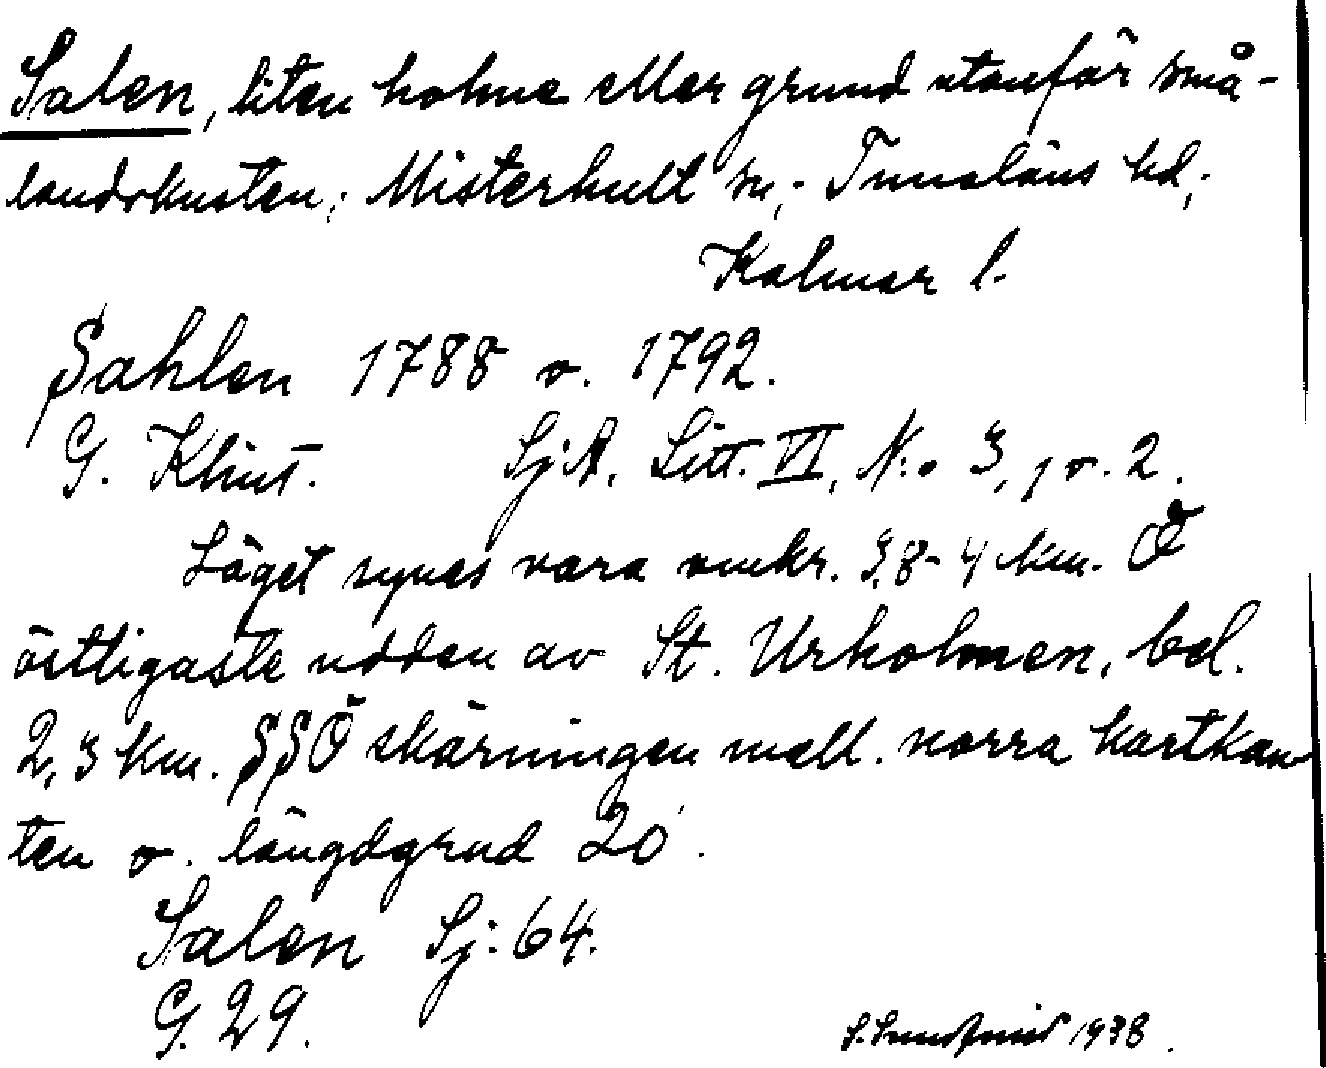 Salen, liten holme eller grund utanför små-
landskusten; Misterhult sn; Tunaläns hd;
Kalmar l.
Sahlen 1788 o. 1792.
G. Klint. SjA. Litt. VI, N:o 3, 1 o. 2.
Läget synes vara omkr. 3,8-4 km. Ö
östligaste udden av St. Urholmen, bel.
2,3 km. SSÖ skärningen mell. norra kartkan-
ten o. längdgrad 20'.
Salen Sj: 64.
G. 29.
1938.